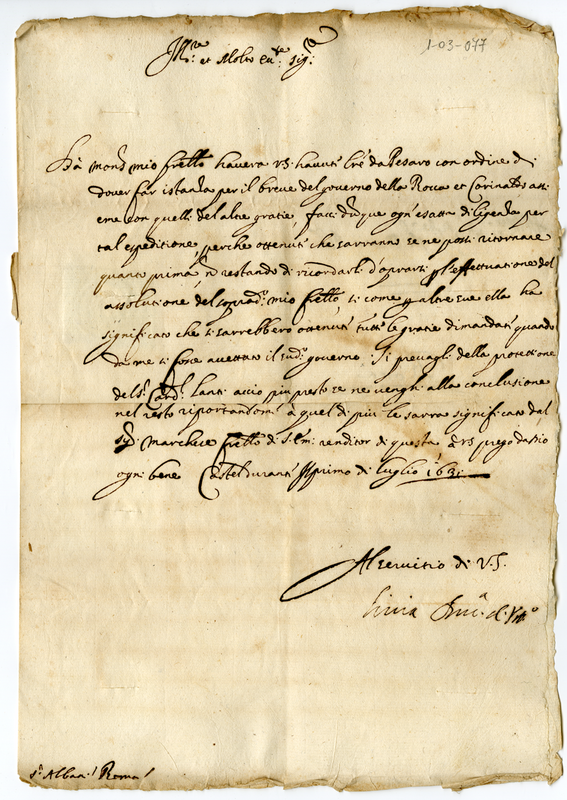 1-03-077
Ill.re et Molto ecc.te sig.re
Da mons.r mio fratello havera V.S. havuti lre da Pesaro con ordine di
dover far istanza per il breve del governo della Roca et Corinaldo
eme con quelli del altre gratie, facci dunque ogn'esatta diligenza per
tal espeditione, perche ottenuti che sarranno se ne possi ritornare
quanto prima, restando di ricordarli d'oprarsi effettuatione del
assolutione del soprad.o mio fratello, si come altre sue ella ha
significato che si sarrebbero ottenuti tutte le gratie dimandati quando
da me si fosse accettato il sud.o governo. Si prevagli della protettione
del s.r Card.l Lanti accio piu presto se ne venghi alla conclusione
nel resto riportandomi à quel di più le sarra significato dal
sig. Marchese fratello di S. Em. renditor di questa à V.S. prego da Dio
ogni bene Casteldurante il primo di luglio 163
Al servitio di V.S.
Livia Duc.a d'Urb.o
s.r Albani Roma